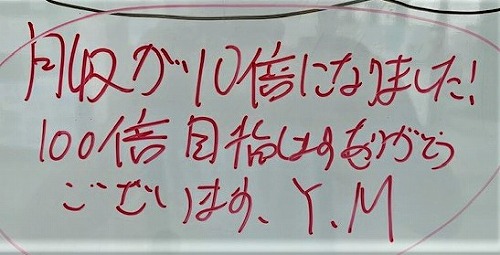 月収が10倍になりました!
100倍目指しますありがとう
ございます、Y.M